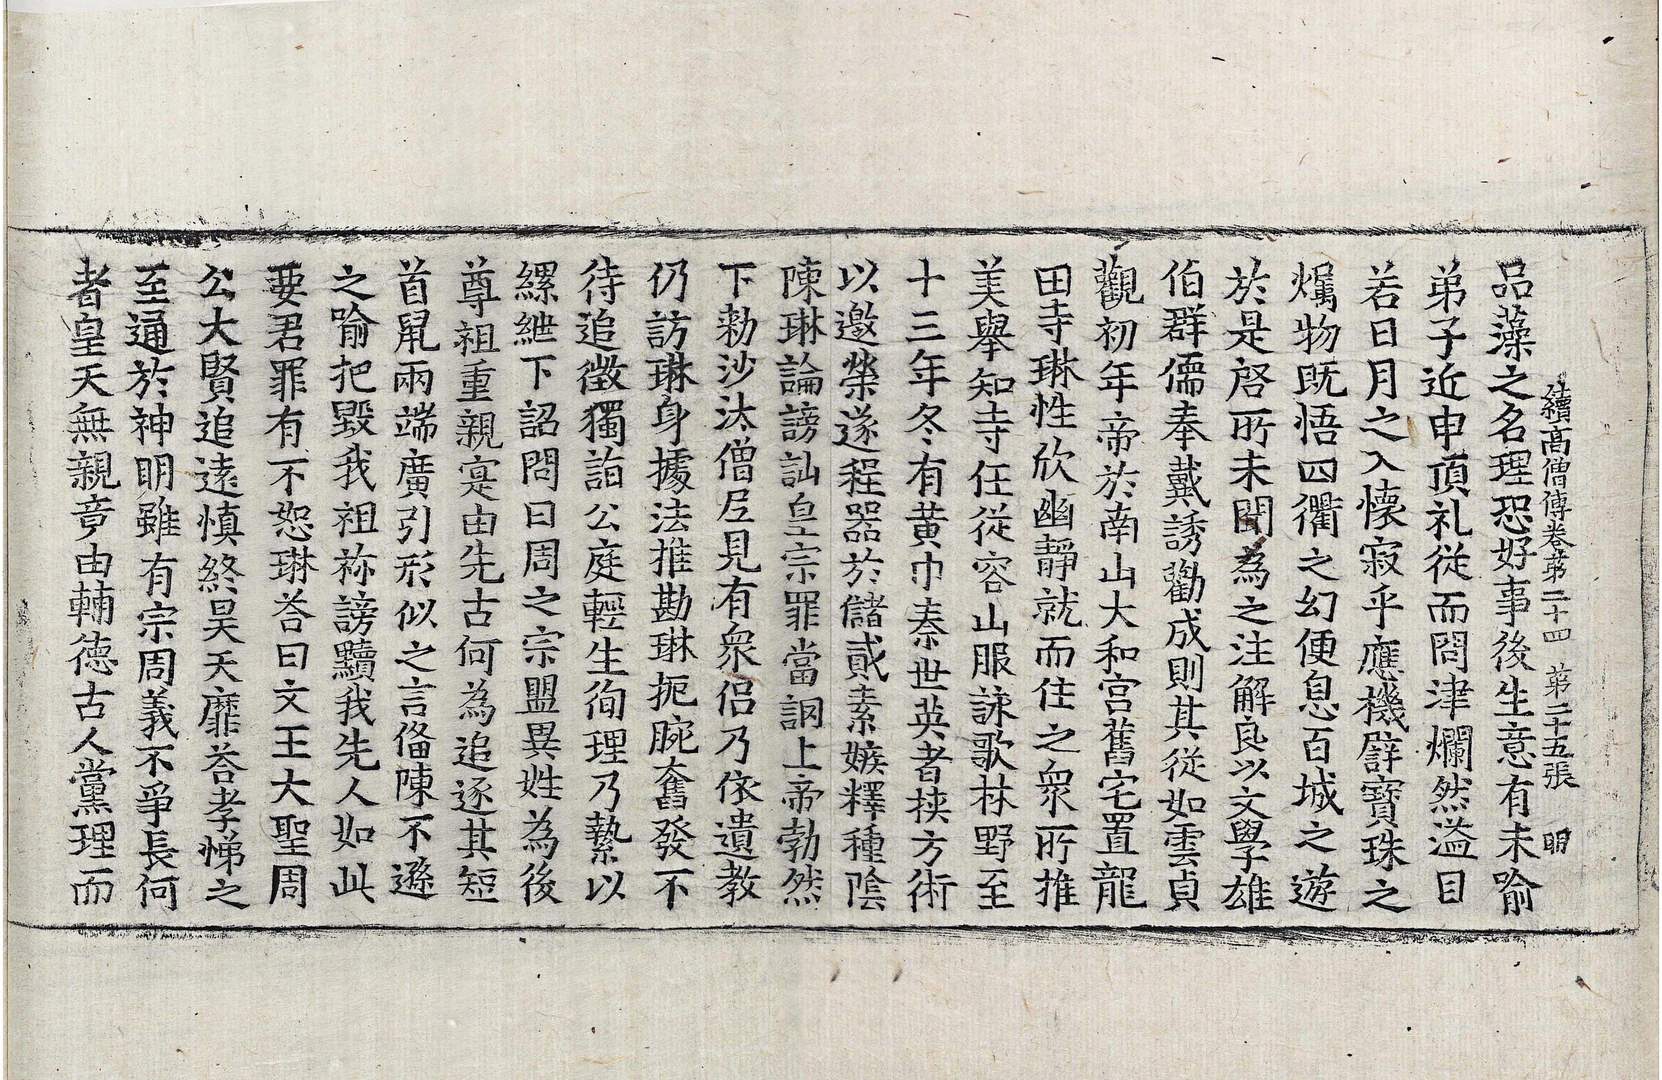 續高僧傳卷第二十四 第二十五張 明
品藻之名理恐好事後生意有未喻
弟子近申頂礼從而問津爛然溢目
若日月之入懷寂乎應機譬寶珠之
燭物既悟四衢之幻便息百城之遊
於是啓所未聞為之注解良以文學雄
伯群儒奉戴誘勸成則其從如雲貞
觀初年帝於南山大和宮舊宅置龍
田寺琳性欣幽靜就而住之衆所推
美舉知寺任從容山服詠歌林野至
十三年冬有黄巾秦世英者挾方術
以邀榮遂程器於儲貳素嫉釋種陰
陳琳論謗訕皇宗罪當調上帝勃然
下勅沙汰僧尼見有衆侶乃依遺教
仍訪琳身據法推勘琳扼腕奮發不
待追徵獨詣公庭輕生徇理乃縶以
縲紲下詔問曰周之宗盟異姓為後
尊祖重親寔由先古何為追逐其短
首鼠兩端廣引形似之言俻陳不遜
之喻把毀我祖祢謗黷我先人如此
要君罪有不恕琳荅曰文王大聖周
公大賢追遠慎終昊天靡荅孝悌之
至通於神明雖有宗周義不爭長何
者皇天無親竟由輔德古人黨理而